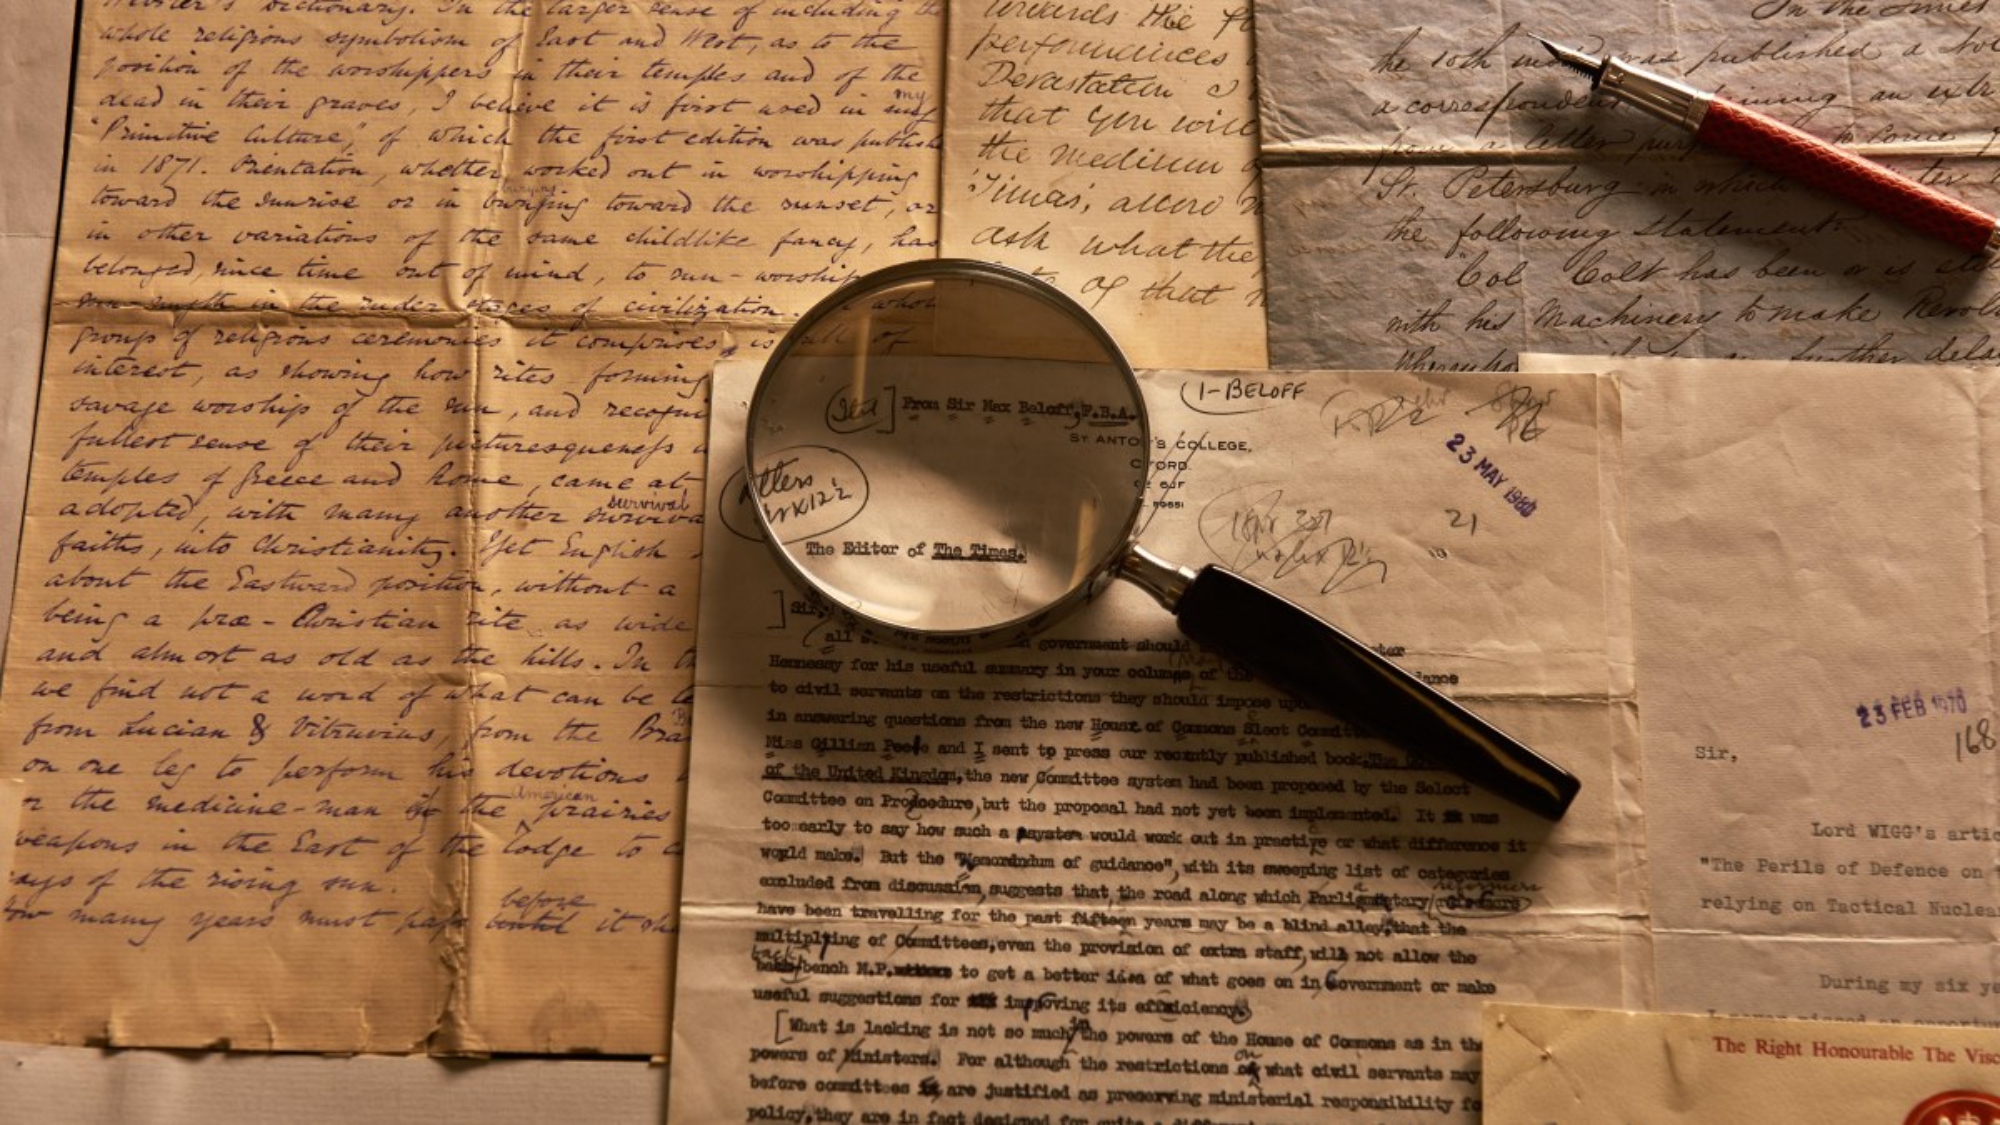 Webster's Dictionary. In the larger sense of including the
whole religious symbolism of East and West, as to the
position of the worshippers in their temples and of the
dead in their graves, I believe it is first used in my
"Primitive Culture", of which the first edition was publish
in 1871. Orientation, whether worked out in worshipping
toward the sunrise or in burying toward the sunset, or
in other variations of the same childlike fancy, has
belonged, since time out of mind, to sun-worship
sun-myth in the ruder stages of civilization. whole
group of religious ceremonies it comprises, is full of
interest, as showing how rites forming
savage worship of the sun, and recogni
fullest sense of their picturesqueness
temples of Greece and Rome, came at
adopted, with many another survival
faiths, into Christianity. Yet English
about the Eastward position, without a
being a præ-Christian rite as wide
and almost as old as the hills. In
we find not a word of what can be
from Lucian & Vitruvius, from the Bra
on one leg to perform his devotions
or the medicine-man of the American prairies
weapons in the East of the lodge to
rays of the rising sun.
How many years must pass before it
towards the
performances
Devastation
that you will
the medium
'Times', accord
ask what the
of that
In the Times
the 10th was published a
a correspondent an extr
from a letter to come
St. Petersburg in which
the following statement
"Col Colt has been or is still
with his Machinery to make Revol
further dela
1-BELOFF
From Sir Max Beloff, F.B.A.
ST ANTO 'S COLLEGE,
23 MAY 1980
21
The Editor of The Times.
Sir,
all government should
Hennessy for his useful summary in your columns of the
to civil servants on the restrictions they should impose
in answering questions from the new House of Commons Select Committ
Miss Gillian Peele and I sent to press our recently published book, The
of the United Kingdom, the new Committee system had been proposed by the Select
Committee on Procedure, but the proposal had not yet been implemented. It was
too early to say how such a system would work out in practice or what difference it
would make. But the "Memorandum of guidance", with its sweeping list of categories
excluded from discussion, suggests that the road along which Parliamentary reformers
have been travelling for the past fifteen years may be a blind alley, that the
multiplying of Committees, even the provision of extra staff, will not allow the
back bench M.P. to get a better idea of what goes on in Government or make
useful suggestions for improving its efficiency.
[What is lacking is not so much in the powers of the House of Commons as in the
powers of Ministers. For although the restrictions on what civil servants may
before committees are justified as preserving ministerial responsibility fo
policy, they are in fact designed for quite a different
23 FEB 1970
168
Sir,
Lord WIGG's artic
"The Perils of Defence on
relying on Tactical Nuclea
During my six ye
The Right Honourable The Visc